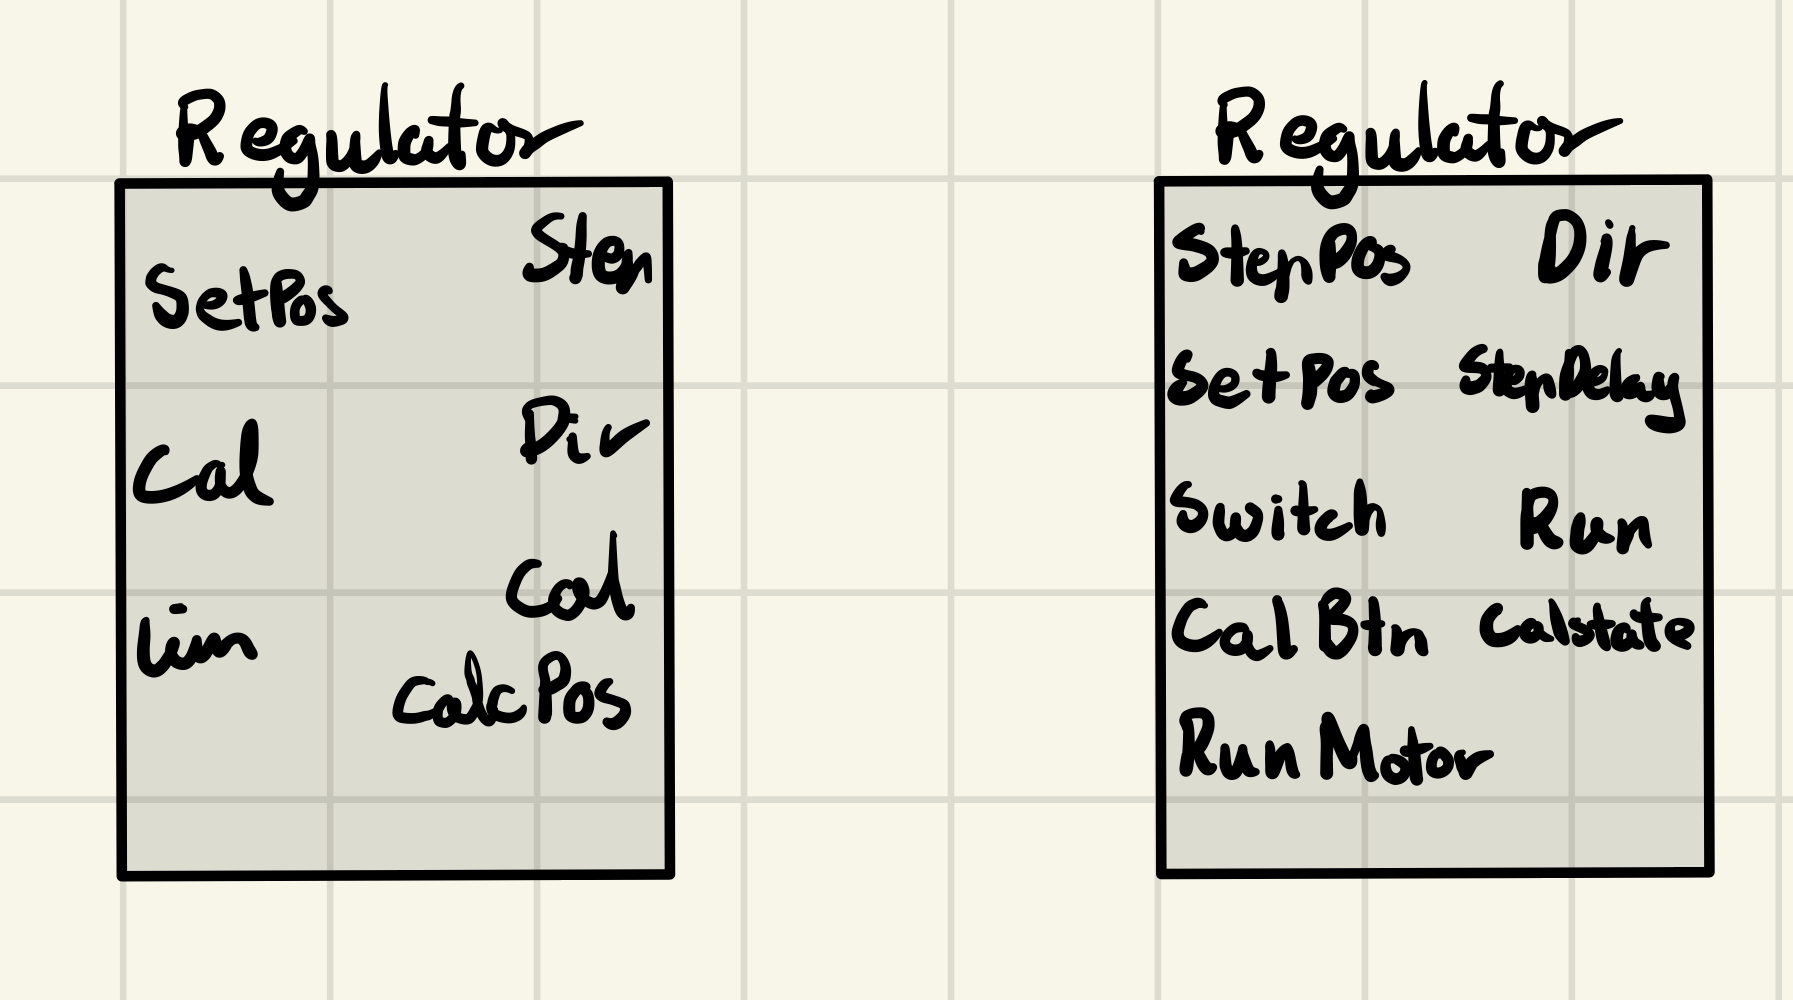 Regulator
SetPos
Cal
Lim
Step
Dir
Cal
CalcPos
Regulator
StepPos
SetPos
Switch
Cal Btn
Run Motor
Dir
StepDelay
Run
Calstate